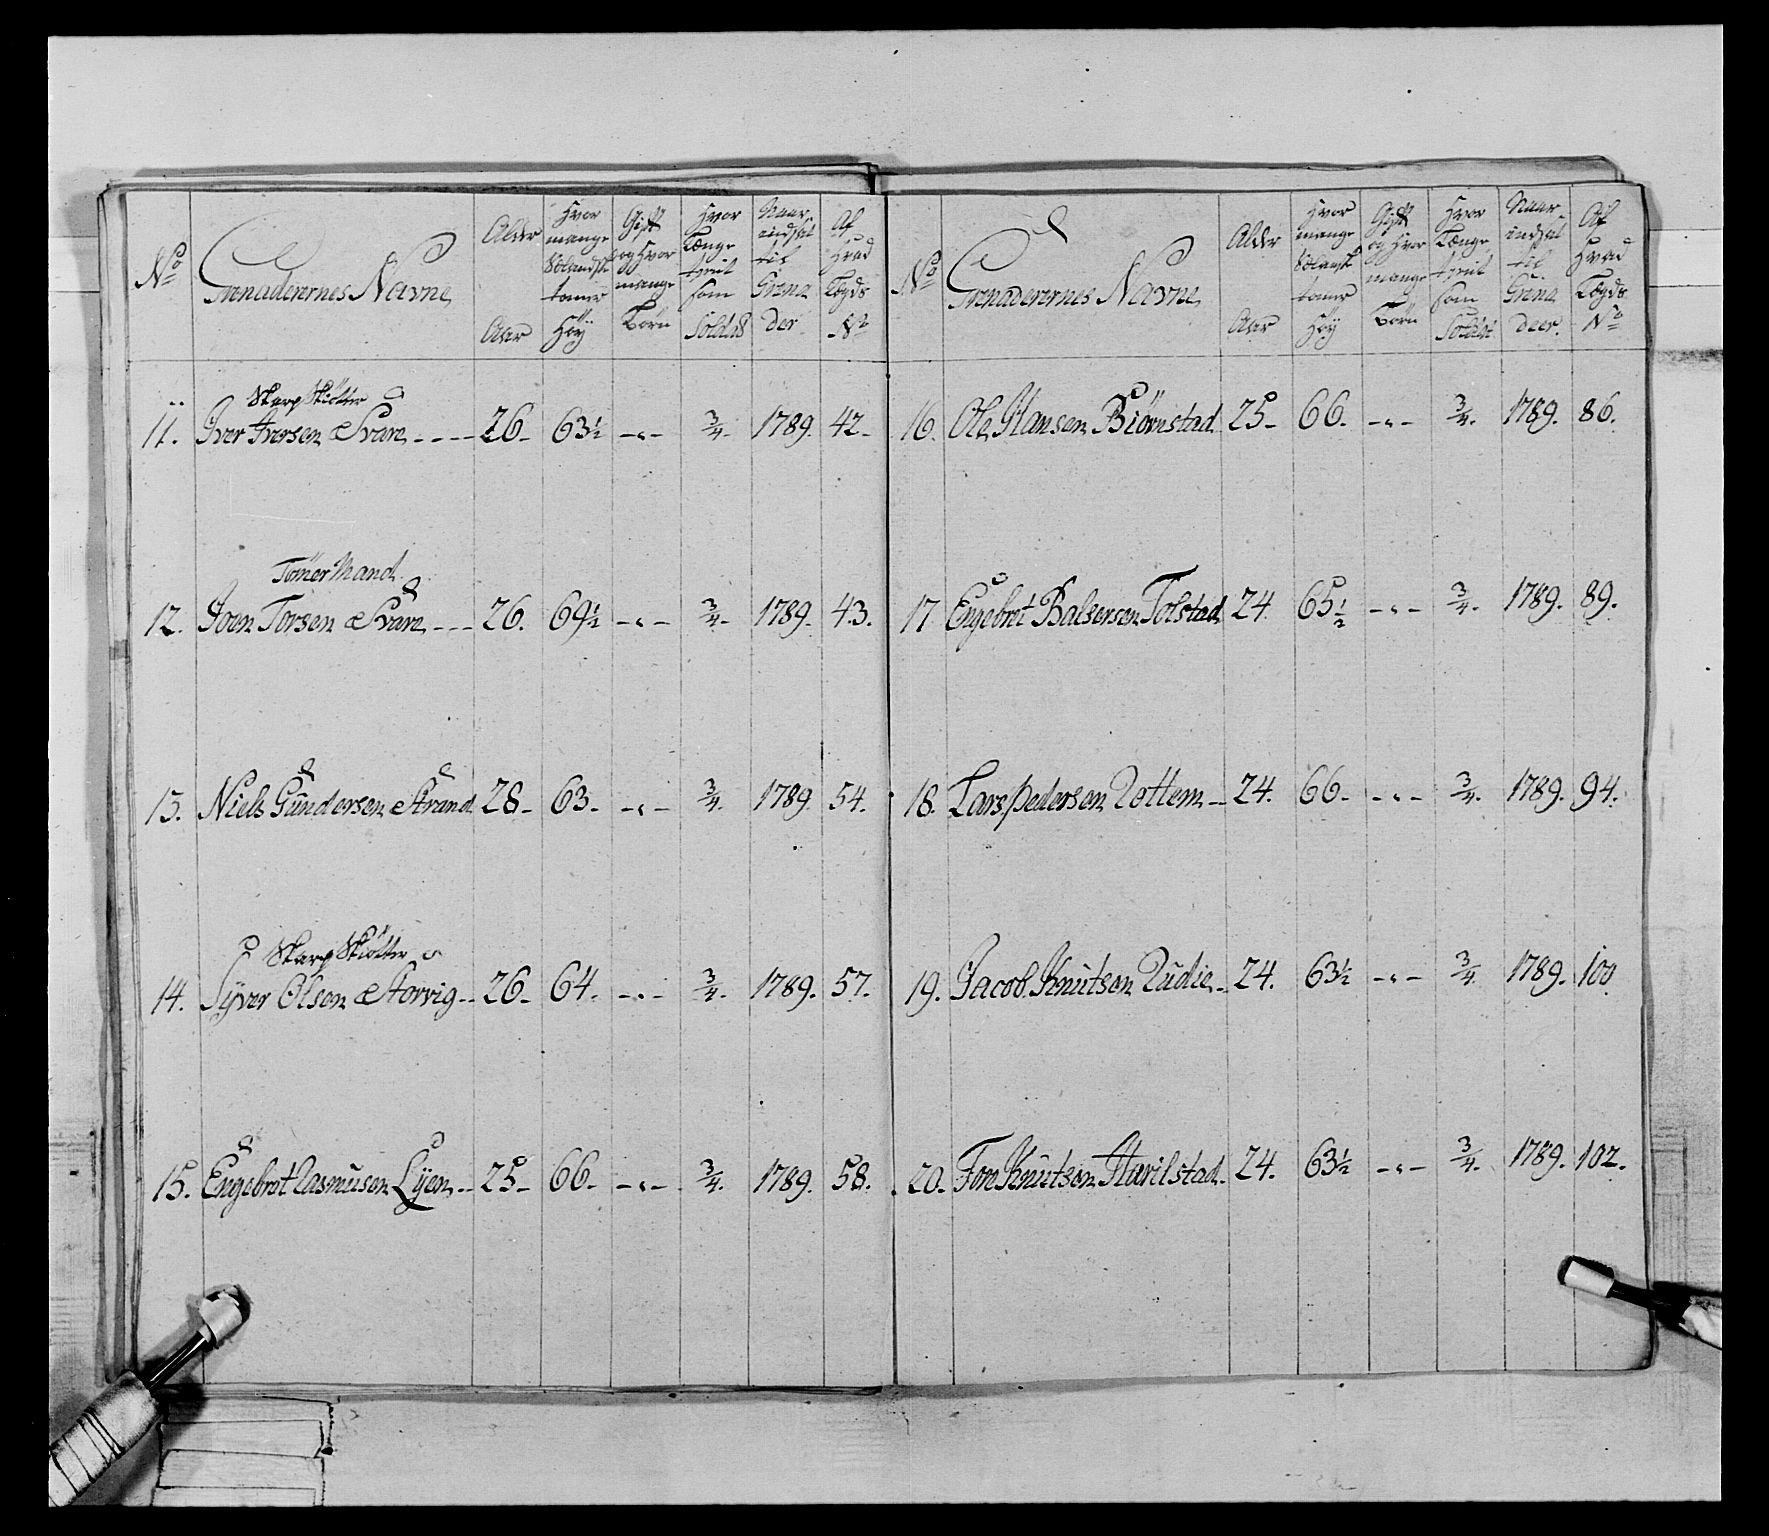 No
Grenaderernes Navne
Alder
Aar
Hvor
mange
Siælandsk
tomer
Høÿ
Gift
og Hvor
mange
Børn
Hvor
Længe
tient
som
Soldat
Naar
indsat
til
Grena
der
Af
Hvad
Lægds
No
Skarp Skiötter
11. Iver Iversen Svare 26 63½ -"- ¾ 1789. 42
Tömer Mand
12. Joen Torsen Svare 26. 69½ -"- ¾ 1789. 43.
13. Niels Gundersen Strand 28 63 -"- ¾ 1789. 54.
Skarp Skiötter
14. Syver Olsen Storvig 26 64. -"- ¾ 1789. 57.
15. Engebret Rasmusen Lÿen 25 66 -"- ¾ 1789. 58.
No
Grenaderernes Navne
Alder
Aar
Hvor
mange
Siælansk
tomer
Høÿ
Gift
og Hvor
mange
Börn
Hvor
Længe
tient
som
Soldat
Naar
indsat
til
Grena
deer.
Af
Hvad
Lægds
No
16. Ole Hansen Biörnstad 25 66. -"- ¾. 1789. 86.
17 Engebret Balsersen Tolstad 24 65½ -"- ¾. 1789. 89.
18. Lars Pedersen Rottem 24. 66 -"- ¾. 1789. 94.
19. Jacob Knutsen Rudie 24. 63½ -"- ¾. 1789. 100
20. Tore Knutsen Harilstad 24. 63½ -"- ¾. 1789. 102.